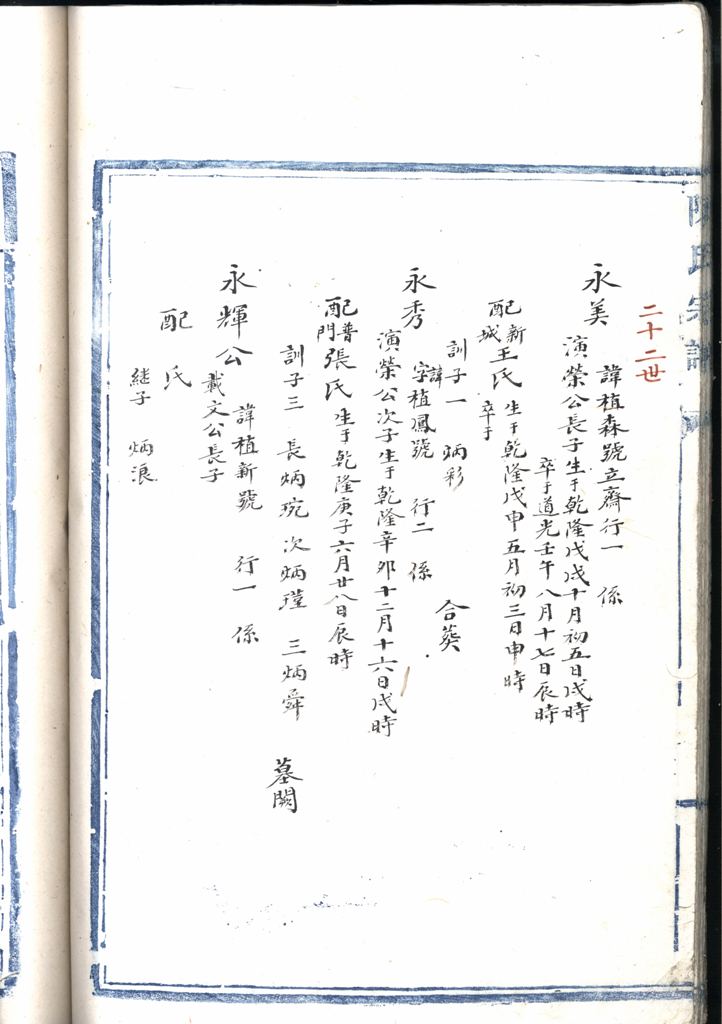 陳氏宗譜
二十二世
永美
諱植森號立齋行一 係
演榮公長子生于乾隆戊戌十月初五日戌時
卒于道光壬午八月十七日辰時
配新城王氏 生于乾隆戊申五月初三日申時
卒于
訓子一 炳彩
合葬
永秀
諱
字植鳳號 行二 係
演榮公次子生于乾隆辛卯十二月十六日戌時
配普門張氏生于乾隆庚子六月廿八日辰時
訓子三 長炳琬 次炳瑾 三炳舜
墓闕
永輝公
諱植新號 行一 係
載文公長子
配 氏
继子 炳浪